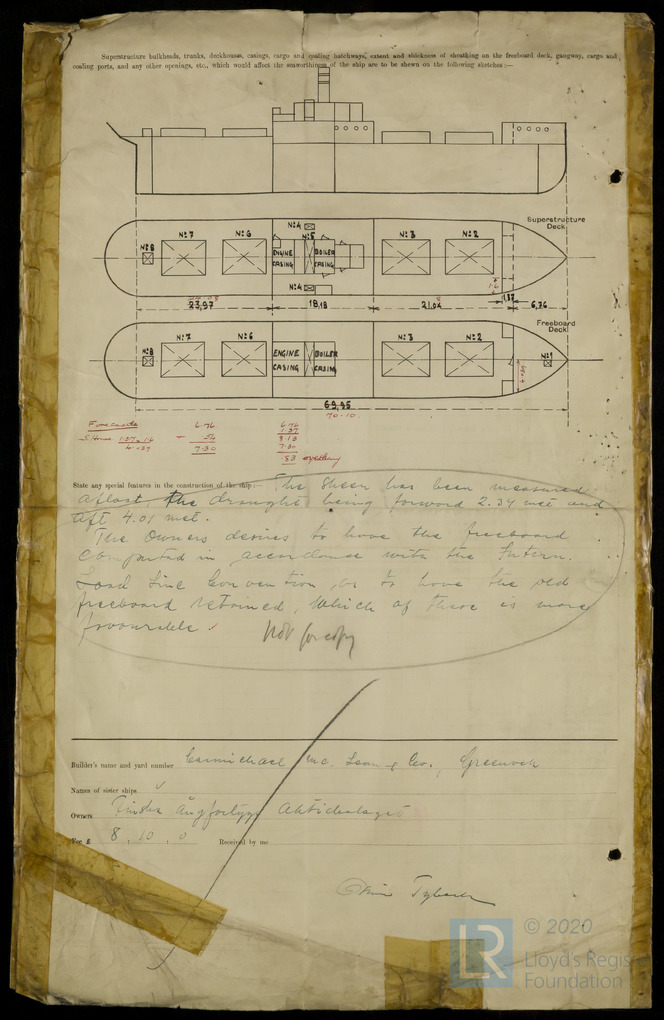 Superstructure bulkheads, trunks, deckhouses, casings, cargo and coaling hatchways, extent and thickness of sheathing on the freeboard deck, gangway, cargo and
coaling ports, and any other openings, etc., which would affect the seaworthiness of the ship are to be shewn on the following sketches :—
Superstructure
Deck
No 8
No 7
No 6
No 4
No 5
ENGINE
CASING
BOILER
CASING
No 4
No 3
No 2
1.6
23,97
18,18
21,04
1,37
6,76
Freeboard
Deck
No 8
No 7
No 6
ENGINE
CASING
BOILER
CASING
No 3
No 2
No 1
69,95
70.10
Forecastle
6.76
.54
7.30
6.76
1.37
8.13
7.30
.83 overhang
State any special features in the construction of the ship:— The sheer has been measured
afloat the draught being forward 2.34 met and
aft 4.01 met.
The Owners desires to have the freeboard
computed in accordance with the Intern.
Load Line Convention or to have the old
freeboard retained, which of these is more
favourable.
Not for copy
Builder's name and yard number Carmichael Mc. Lean & Co., Greenock
Names of sister ships
Owners Finska Ångfartygs Aktiebolaget
Fee £ 8 : 10 : 0 Received by me
© 2020
LR
Lloyd's Register
Foundation